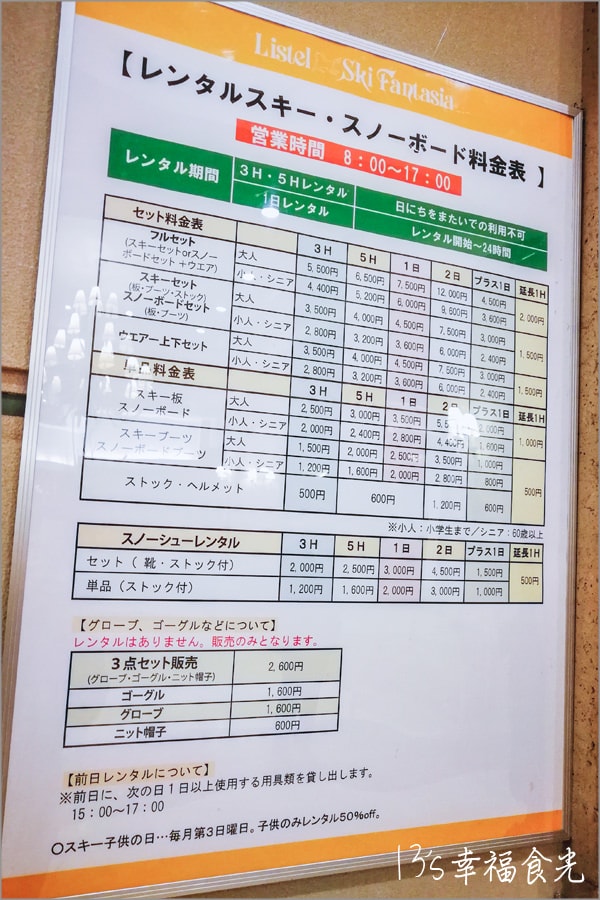 Listel Ski Fantasia
【 レンタルスキー・スノーボード料金表 】
営業時間 8：00～17：00
レンタル期間 3H・5Hレンタル 日にちをまたいでの利用不可
1日レンタル レンタル開始～24時間
セット料金表 3H 5H 1日 2日 プラス1日 延長1H
フルセット
(スキーセットorスノーボードセット＋ウエア)
大人 5,500円 6,500円 7,500円 12,000円 4,500円 2,000円
小人・シニア 4,400円 5,200円 6,000円 9,600円 3,600円
スキーセット
(板・ブーツ・ストック)
スノーボードセット
(板・ブーツ)
大人 3,500円 4,000円 4,500円 7,500円 3,000円 1,500円
小人・シニア 2,800円 3,200円 3,600円 6,000円 2,400円
ウエアー上下セット
大人 3,500円 4,000円 4,500円 7,500円 3,000円 1,500円
小人・シニア 2,800円 3,200円 3,600円 6,000円 2,400円
単品料金表 3H 5H 1日 2日 プラス1日 延長1H
スキー板
スノーボード
大人 2,500円 3,000円 3,500円 2,000円 1,000円
小人・シニア 2,000円 2,400円 2,800円 4,400円 1,600円
スキーブーツ
スノーボードブーツ
大人 1,500円 2,000円 2,500円 3,500円 1,000円 500円
小人・シニア 1,200円 1,600円 2,000円 2,800円 800円
ストック・ヘルメット 500円 600円 1,200円 600円
※小人：小学生まで／シニア：60歳以上
スノーシューレンタル 3H 5H 1日 2日 プラス1日 延長1H
セット（ 靴・ストック付） 2,000円 2,500円 3,000円 4,500円 1,500円 500円
単品（ストック付） 1,200円 1,600円 2,000円 3,000円 1,000円
【グローブ、ゴーグルなどについて】
レンタルはありません。販売のみとなります。
３点セット販売
(グローブ・ゴーグル・ニット帽子)
2,600円
ゴーグル 1,600円
グローブ 1,600円
ニット帽子 600円
【前日レンタルについて】
※前日に、次の日１日以上使用する用具類を貸し出します。
15：00～17：00
○スキー子供の日…毎月第3日曜日。子供のみレンタル50%off。
13's幸福食光